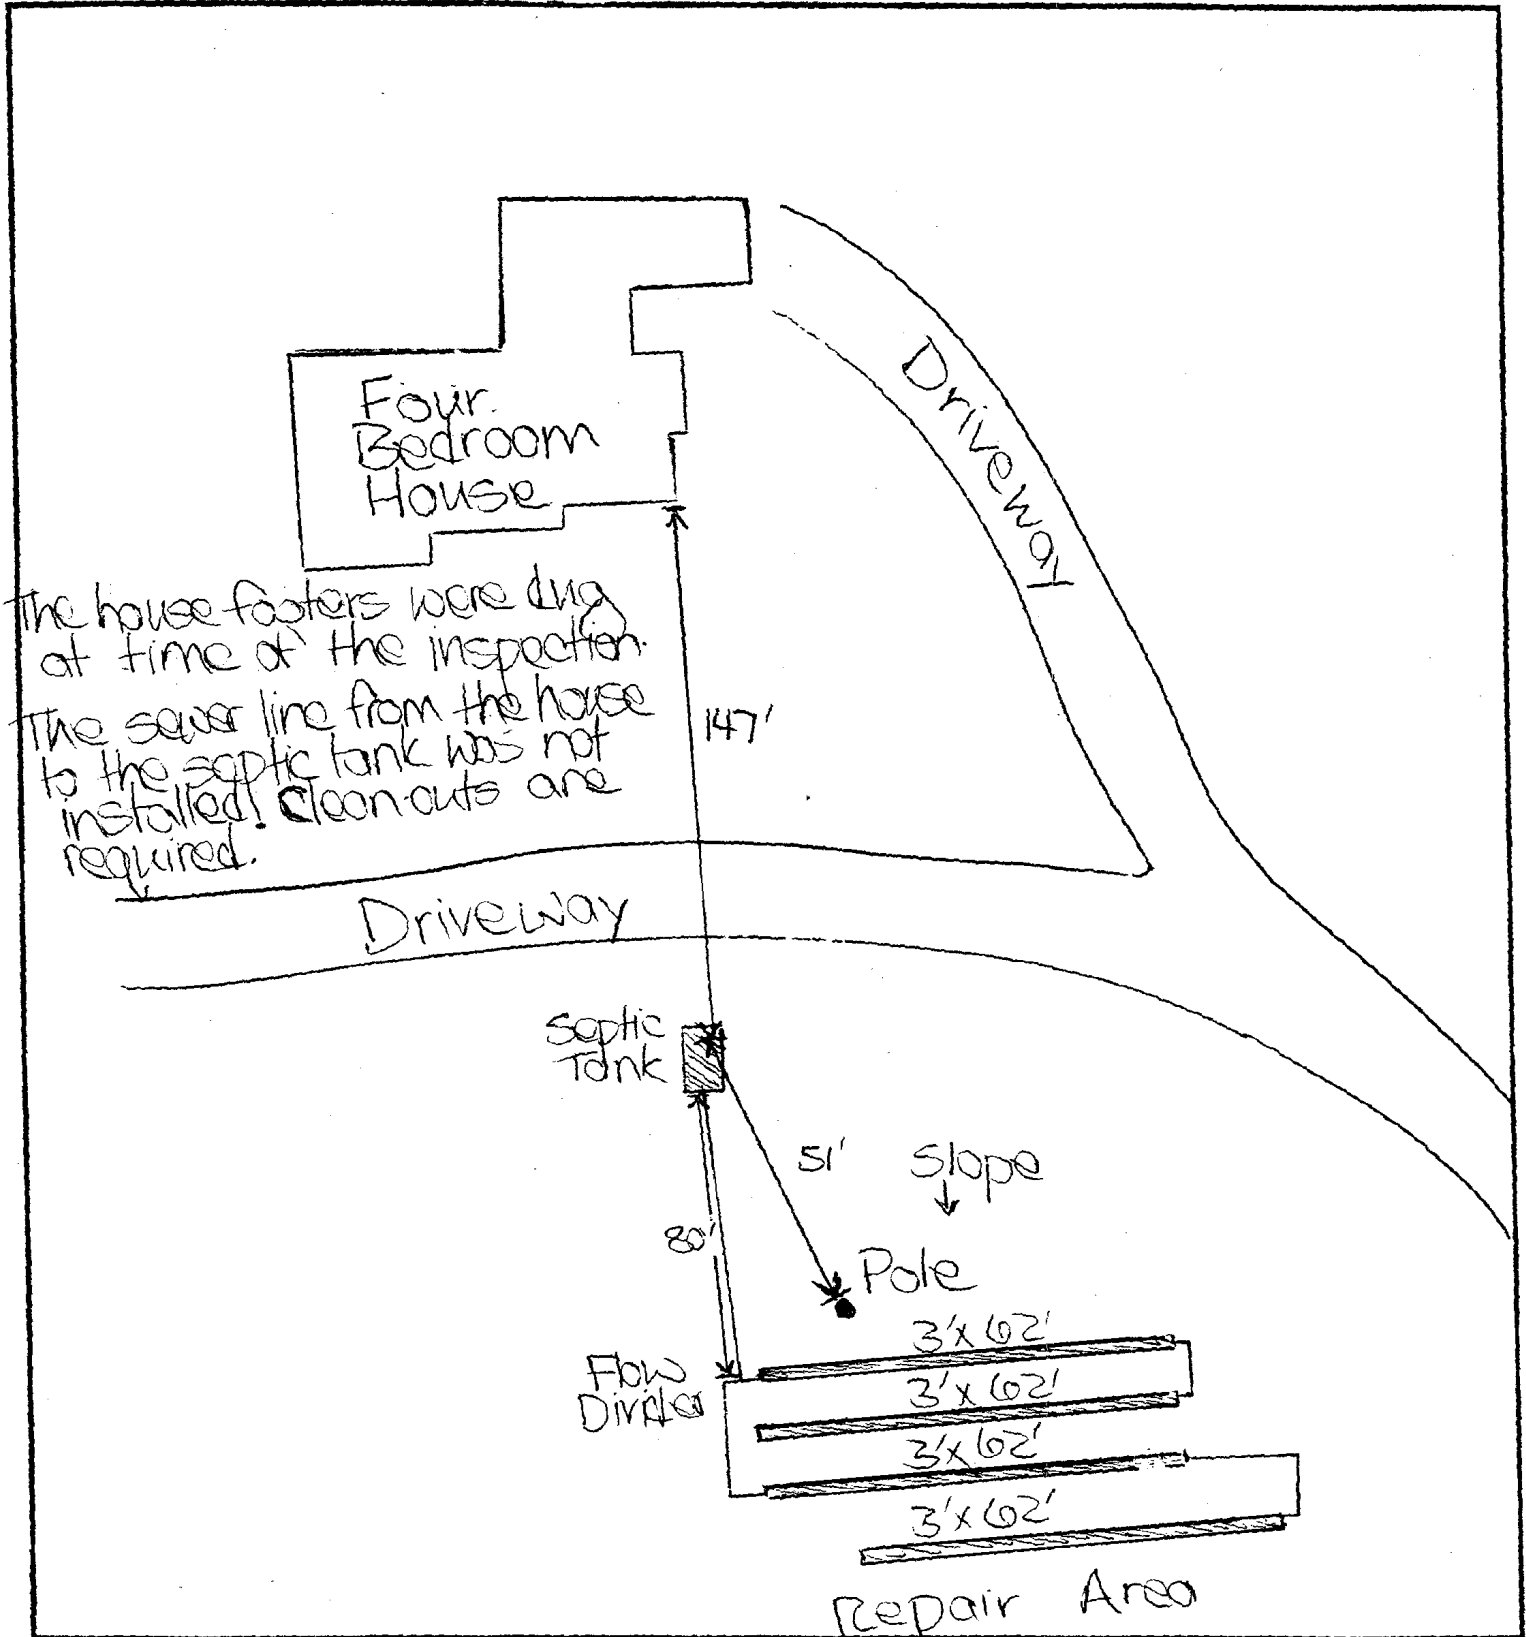 Four
Bedroom
House
Driveway
The house footers were dug
at time of the inspection.
The sewer line from the house
to the septic tank was not
installed! Cleanouts are
required.
147'
Driveway
Septic
Tank
51'
Slope
80'
Pole
3'x62'
Flow
Divider
3'x62'
3'x62'
3'x62'
Repair Area